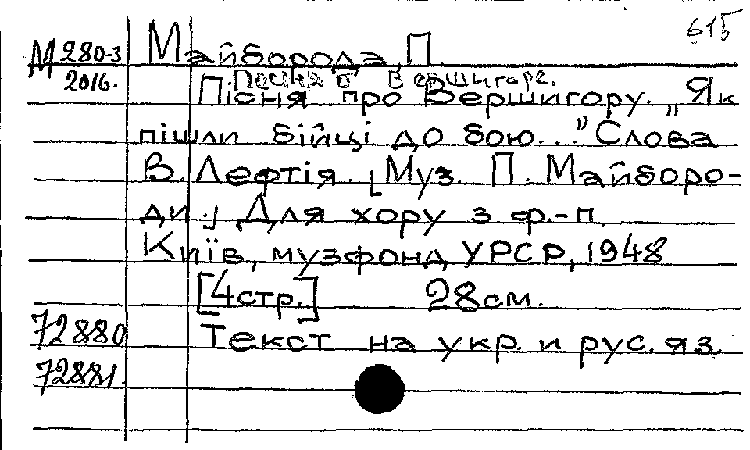 615
М 280-3
2016.
Майборода, П.
Песня о Вершигоре.
Пісня про Вершигору. „Як
пішли бійці до бою..." Слова
В. Лефтія. [Муз. П. Майборо-
ди.] Для хору з ф.-п.
Київ, музфонд УРСР, 1948
[4стр.] 28см.
72880
Текст на укр. и рус. яз.
72881